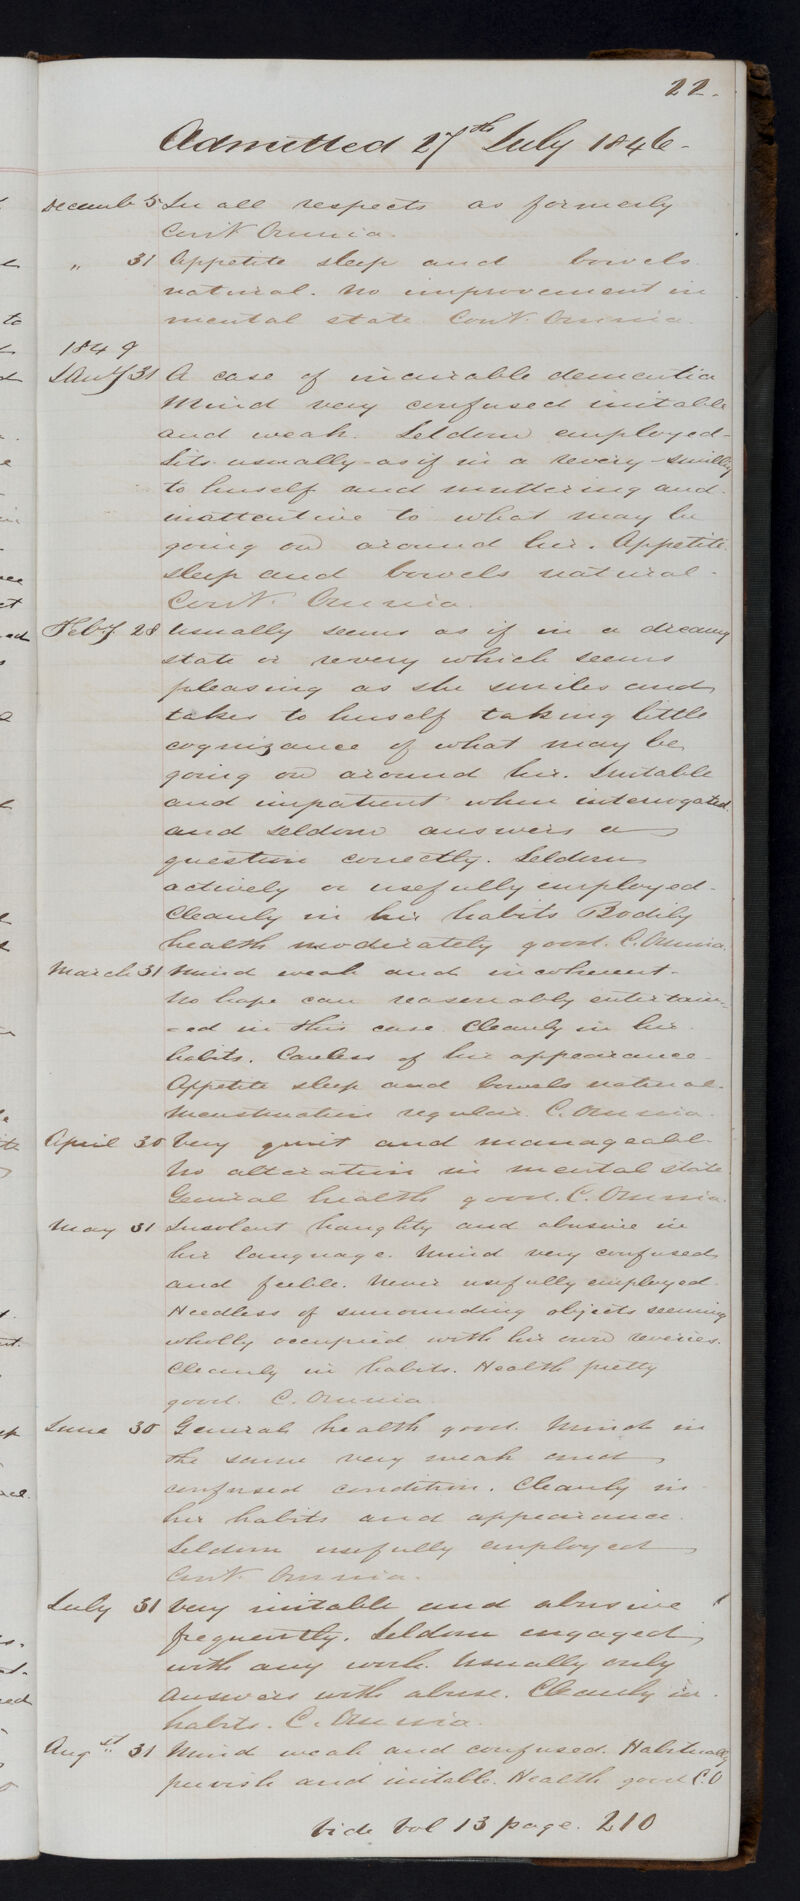 22.
Admitted 27th July 1846-
Decemb 5 In all respects as formerly
Cont. Omnia.
" 31 Appetite sleep and bowels
natural. No improvement in
mental state. Cont. Omnia.
1849
Jany 31 A case of incurable dementia
Mind very confused irritable
and weak. Seldom employed-
Sits usually as if in a revery smiling
to herself and muttering and
inattentive to what may be
going on around her. Appetite
sleep and bowels natural-
Cont. Omnia.
Feby 28 Usually seems as if in a dreamy
state or revery which seems
pleasing as she smiles and
talkes to herself taking little
cognizance of what may be
going on around her. Irritable
and impatient when interrogated
and seldom answers a
question correctly. Seldom
actively or usefully employed-
Cleanly in her habits Bodily
health moderately good. C. Omnia.
March 31 Mind weak and incoherent-
No hope can reasonably entertain-
-ed in this case. Cleanly in her
habits. Careless of her appearance-
Appetite sleep and bowels natural-
Menstruation regular. C. Omnia.
April 30 Very quiet and manageable-
No alteration in mental state
General health good. C. Omnia.
May 31 Insolent haughty and abusive in
her language. Mind very confused
and feeble. Never usefully employed.
Heedless of surrounding objects seeming
wholly occupied with her own reveries.
Cleanly in habits. Health pretty
good. C. Omnia.
June 30 General health good. Mind in
the same very weak and
confused condition. Cleanly in
her habits and appearance.
Seldom usefully employed
Cont. Omnia.
July 31 Very irritable and abusive
frequently. Seldom engaged
with any work. Usually only
answers with abuse. Cleanly in
habits. C. Omnia.
Augst 31 Mind weak and confused. Habitually
peevish and irritable. Health good C.O
Vide Vol 13 page. 210